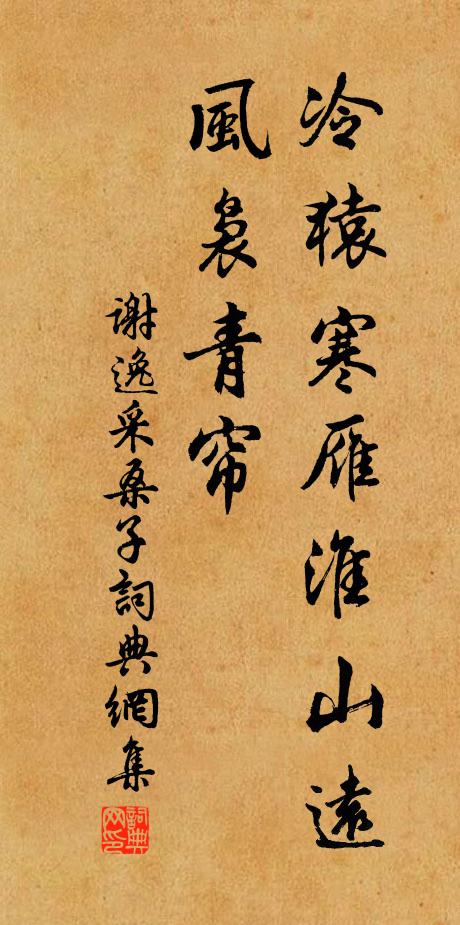 冷猿寒雁淮山遠
風裊青帘
謝逸采桑子詞典網集
詞典网印